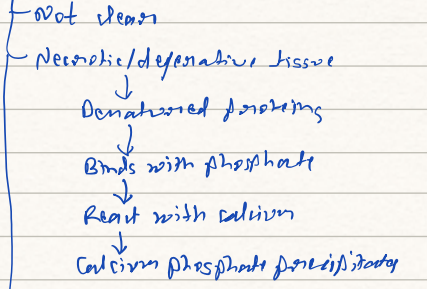 Not clear
Necrotic/degerative tissue
↓
Denatured proteins
↓
Binds with phosphate
↓
React with calcium
↓
Calcium phosphate precipitates